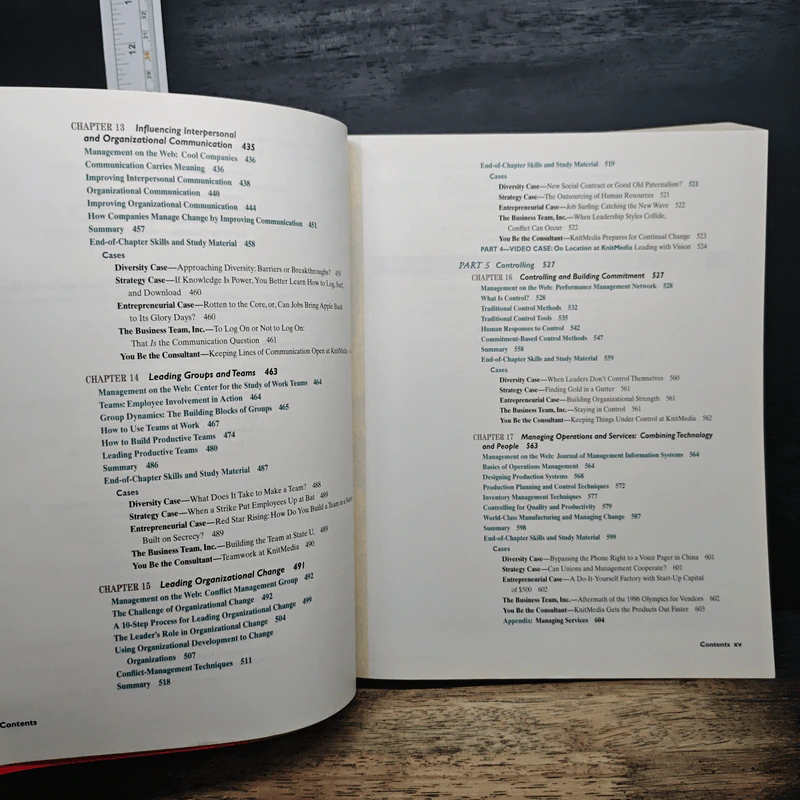 12
CHAPTER 13 Influencing Interpersonal
and Organizational Communication 435
Management on the Web: Cool Companies 436
Communication Carries Meaning 436
Improving Interpersonal Communication 438
Organizational Communication 440
Improving Organizational Communication 444
How Companies Manage Change by Improving Communication 451
Summary 457
End-of-Chapter Skills and Study Material 458
Cases
Diversity Case—Approaching Diversity: Barriers or Breakthroughs? 459
Strategy Case—If Knowledge Is Power, You Better Learn How to Log, Surf,
and Download 460
Entrepreneurial Case—Rotten to the Core, or, Can Jobs Bring Apple Back
to Its Glory Days? 460
The Business Team, Inc.—To Log On or Not to Log On:
That Is the Communication Question 461
You Be the Consultant—Keeping Lines of Communication Open at KnitMedia
CHAPTER 14 Leading Groups and Teams 463
Management on the Web: Center for the Study of Work Teams 464
Teams: Employee Involvement in Action 464
Group Dynamics: The Building Blocks of Groups 465
How to Use Teams at Work 467
How to Build Productive Teams 474
Leading Productive Teams 480
Summary 486
End-of-Chapter Skills and Study Material 487
Cases
Diversity Case—What Does It Take to Make a Team? 488
Strategy Case—When a Strike Put Employees Up at Bat 489
Entrepreneurial Case—Red Star Rising: How Do You Build a Team in a
Built on Secrecy? 489
The Business Team, Inc.—Building the Team at State U. 489
You Be the Consultant—Teamwork at KnitMedia 490
CHAPTER 15 Leading Organizational Change 491
Management on the Web: Conflict Management Group 492
The Challenge of Organizational Change 492
A 10-Step Process for Leading Organizational Change 499
The Leader's Role in Organizational Change 504
Using Organizational Development to Change
Organizations 507
Conflict-Management Techniques 511
Summary 518
Contents
End-of-Chapter Skills and Study Material 519
Cases
Diversity Case—New Social Contract or Good Old Paternalism? 521
Strategy Case—The Outsourcing of Human Resources 521
Entrepreneurial Case—Job Surfing: Catching the New Wave 522
The Business Team, Inc.—When Leadership Styles Collide,
Conflict Can Occur 522
You Be the Consultant—KnitMedia Prepares for Continual Change 523
PART 4—VIDEO CASE: On Location at KnitMedia Leading with Vision 524
PART 5 Controlling 527
CHAPTER 16 Controlling and Building Commitment 527
Management on the Web: Performance Management Network 528
What Is Control? 528
Traditional Control Methods 532
Traditional Control Tools 535
Human Responses to Control 542
Commitment-Based Control Methods 547
Summary 558
End-of-Chapter Skills and Study Material 559
Cases
Diversity Case—When Leaders Don't Control Themselves 560
Strategy Case—Finding Gold in a Gutter 561
Entrepreneurial Case—Building Organizational Strength 561
The Business Team, Inc.—Staying in Control 561
You Be the Consultant—Keeping Things Under Control at KnitMedia 562
CHAPTER 17 Managing Operations and Services: Combining Technology
and People 563
Management on the Web: Journal of Management Information Systems 564
Basics of Operations Management 564
Designing Production Systems 568
Production Planning and Control Techniques 572
Inventory Management Techniques 577
Controlling for Quality and Productivity 579
World-Class Manufacturing and Managing Change 587
Summary 598
End-of-Chapter Skills and Study Material 599
Cases
Diversity Case—Bypassing the Phone Right to a Voice Pager in China 601
Strategy Case—Can Unions and Management Cooperate? 601
Entrepreneurial Case—A Do-It-Yourself Factory with Start-Up Capital
of $500 602
The Business Team, Inc.—Aftermath of the 1996 Olympics for Vendors 602
You Be the Consultant—KnitMedia Gets the Products Out Faster 603
Appendix: Managing Services 604
Contents xv